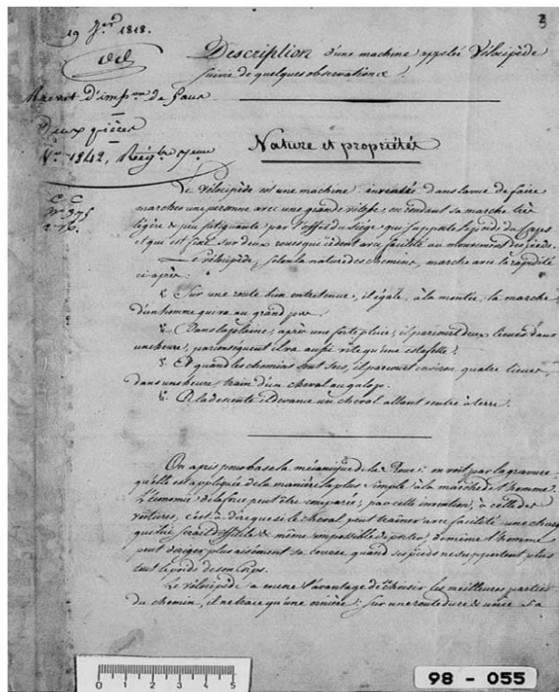 19 Jer 1818.
3
Description d'une machine appelée Vélocipède
suivie de quelques observations.
Brevet d'impon de Cinq
Deux pièces
No 1842,
Nature et propriétés
Le Vélocipède est une machine inventée dans la vue de faire
marcher une personne avec une grande vitesse, en rendant sa marche très
légère & peu fatiguante par l'effet du siège qui supporte le poids du corps
et qui est fixé sur deux roues qui cèdent avec facilité au mouvement des pieds.
Le vélocipède, selon la nature des chemins, marche avec la rapidité
ci-après
Sur une route bien entretenue, il égale, à la montée, la marche
d'un homme qui va au grand pas.
Dans la plaine, après une forte pluie, il parcourt deux lieues dans
une heure, par conséquent il va aussi vite qu'une estafette.
Et quand les chemins sont secs, il parcourt environ quatre lieues
dans une heure, train d'un cheval au galop.
A la descente il devance un cheval allant ventre à terre.
On a pris pour base la mécanique de la Roue: on voit par la gravure
qu'elle est appliquée de la manière la plus simple à la marche de l'homme.
L'économie de la force peut être comparée, par cette invention, à celle des
voitures, c'est à dire que si le cheval peut traîner avec facilité une charge
qu'il lui serait difficile & même impossible de porter, de même l'homme
peut diriger plus aisément sa course quand ses pieds ne supportent plus
tout le poids de son corps.
Le Vélocipède a encore l'avantage de choisir les meilleures parties
du chemin, il ne trace qu'une ornière: sur une route dure & unie sa
0 1 2 3 4 5
98 - 055